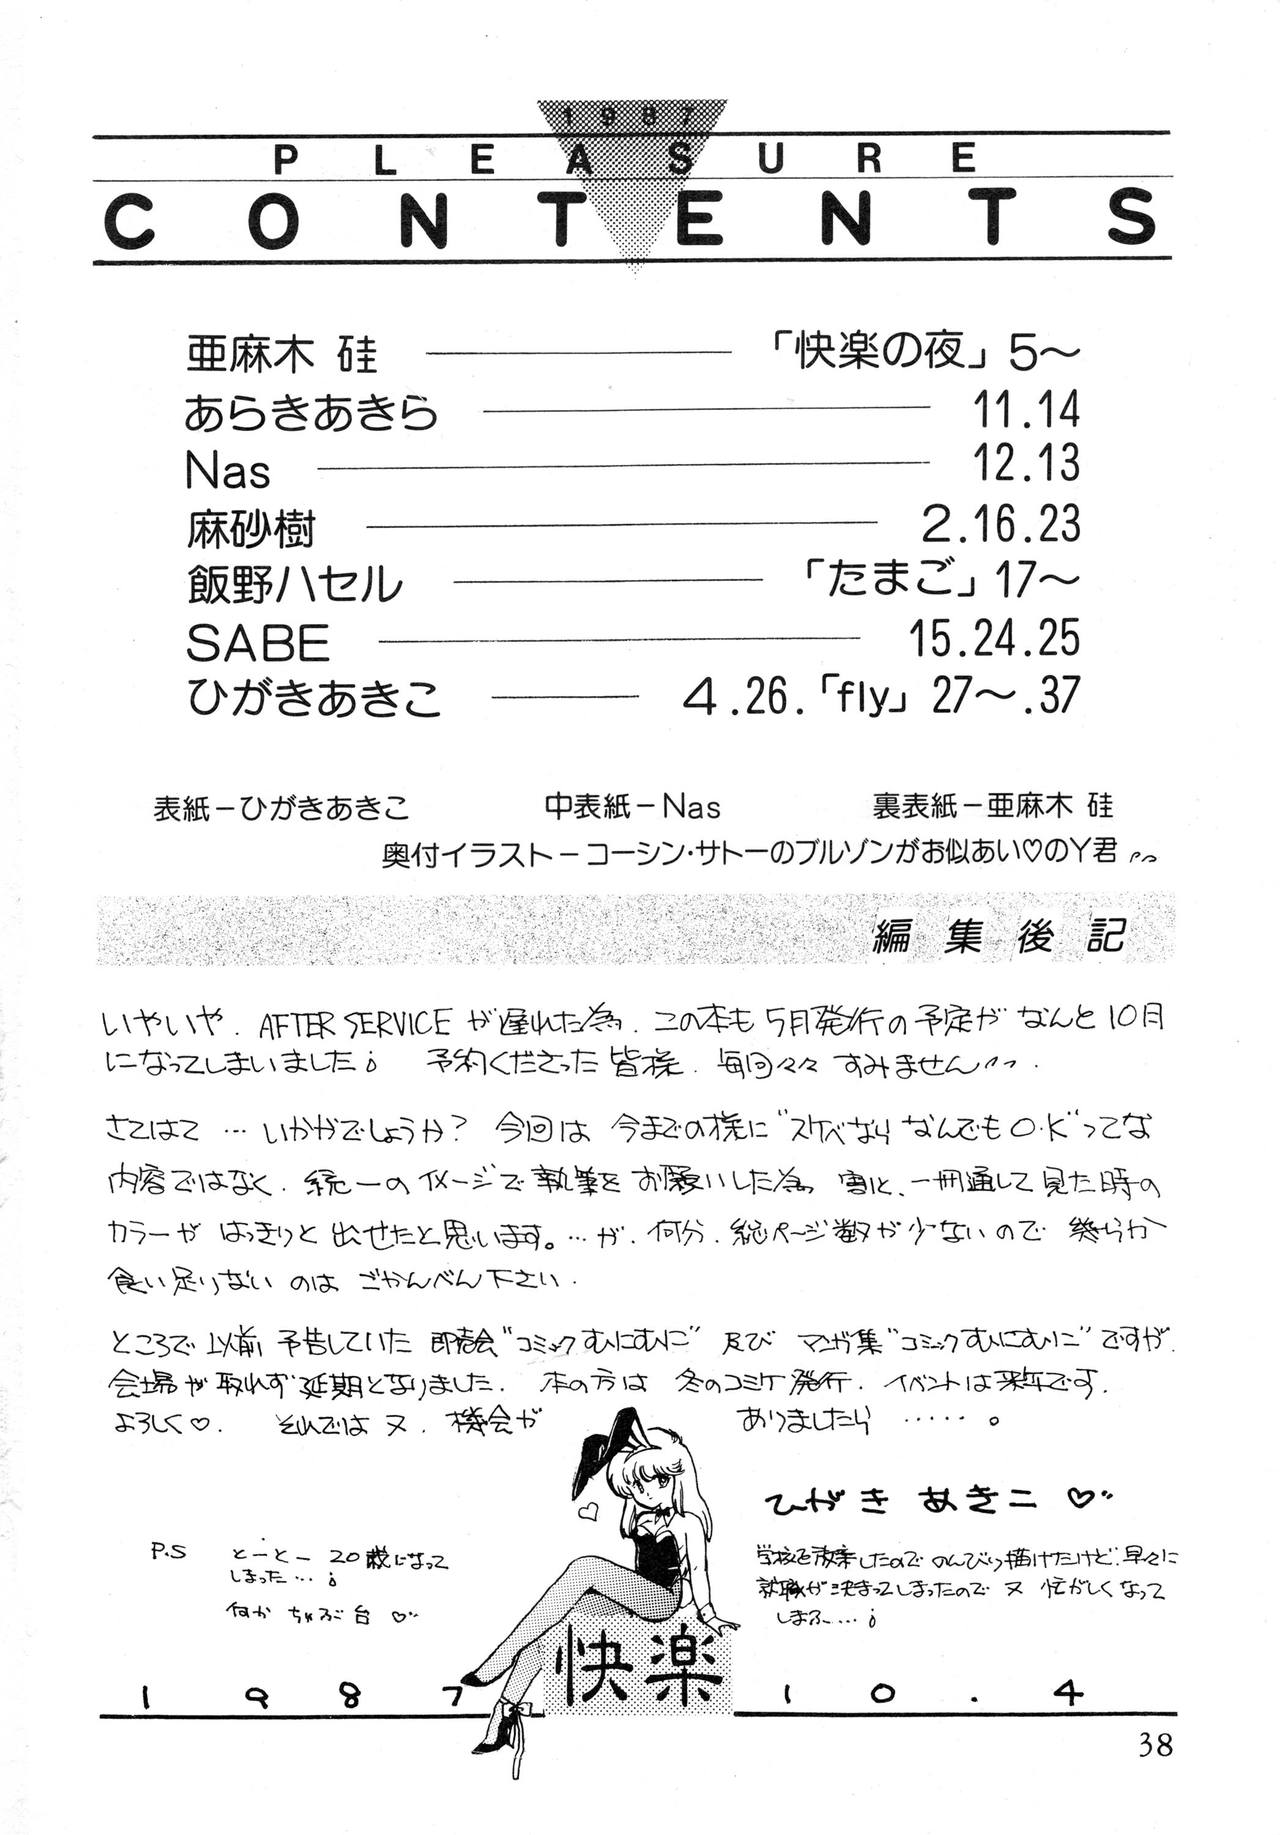 1987
PLEASURE
CONTENTS
亜麻木 硅 「快楽の夜」5〜
あらきあきら 11.14
Nas 12.13
麻砂樹 2.16.23
飯野ハセル 「たまご」17〜
SABE 15.24.25
ひがきあきこ 4.26.「fly」27〜.37
表紙−ひがきあきこ 中表紙−Nas 裏表紙−亜麻木 硅
奥付イラスト−コーシン・サトーのブルゾンがお似あい♡のY君
編集後記
いやいや. AFTER SERVICEが遅れた為、この本も5月発行の予定がなんと10月
になってしまいました¡ 予約くださった皆様. 毎回々々すみません
さてはて…いかがでしょうか? 今回は今までの様に"スケベなら なんでもO.K"ってな
内容ではなく. 統一のイメージで執筆をお願いした為、割と、一冊通して見た時の
カラーが はっきりと出せたと思います。…が. 何分. 総ページ数が少ないので 幾らか
食い足りないのは ごかんべん下さい.
ところで以前予告していた即売会"コミックむにむに"及び マンガ集"コミックむにむに"ですが.
会場が取れず延期となりました. 本の方は 冬のコミケ発行. イベントは来年です.
よろしく♡. それでは又. 機会が ありましたら ……。
ひがき あきこ ♡
P.S とーとー 20歳になって
しまった…¡
何か ちゃぶ台 ♡
学校を卒業したので のんびり描けたけど. 早々に
就職が決まってしまったので 又 忙がしくなって
しまふ…¡
快楽
1987 10.4
38